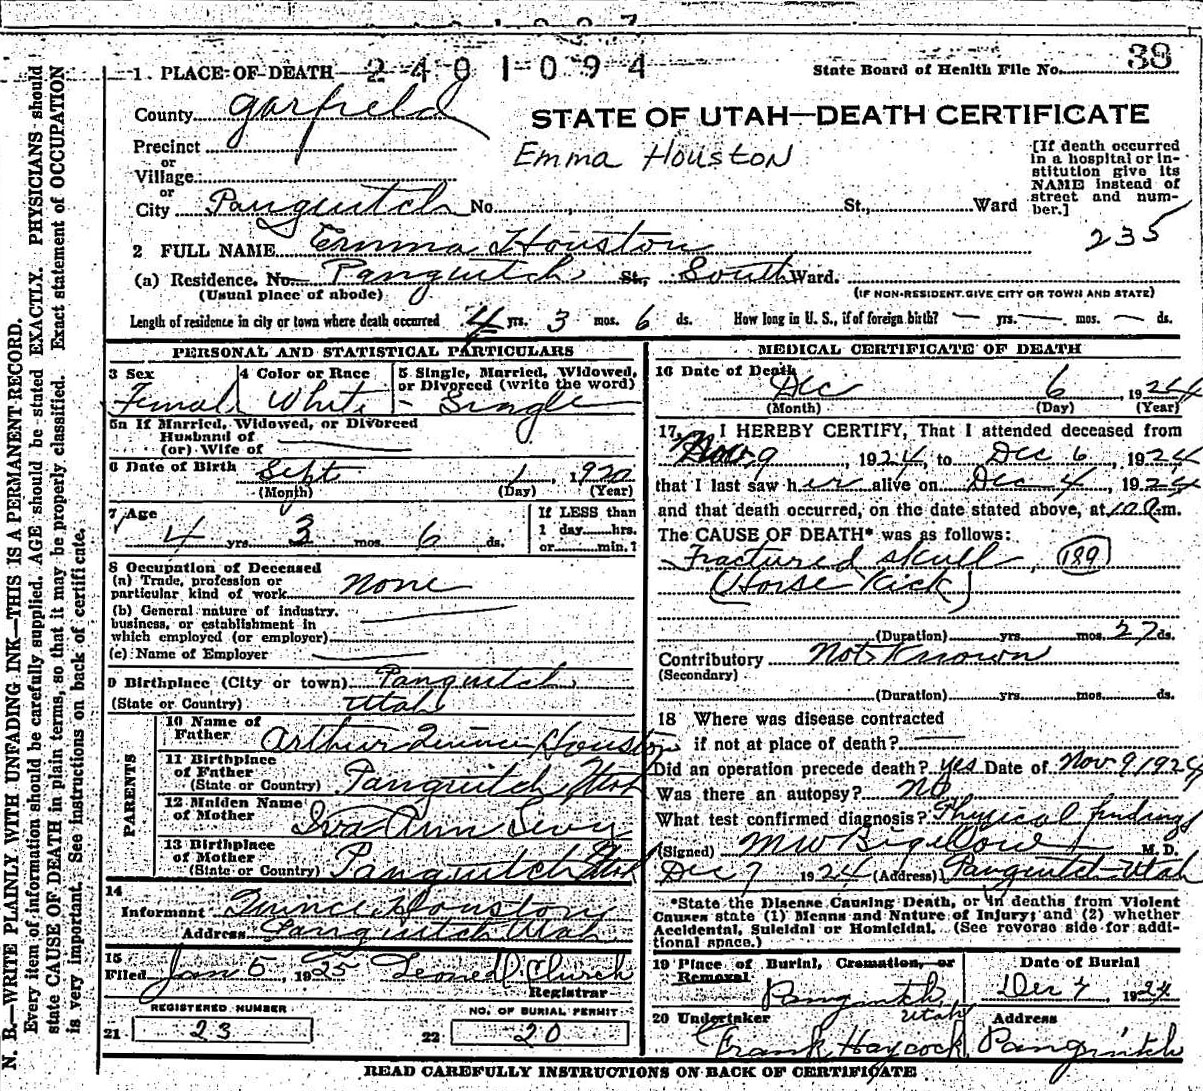 38
1. PLACE OF DEATH 2401094 State Board of Health File No.
County Garfield
STATE OF UTAH—DEATH CERTIFICATE
Precinct
Emma Houston
or
Village
or
City Panguitch No. , St., Ward
[If death occurred
in a hospital or in-
stitution give its
NAME instead of
street and num-
ber.]
235
2 FULL NAME Emma Houston
(a) Residence. No. Panguitch St., South Ward.
(Usual place of abode) (IF NON-RESIDENT GIVE CITY OR TOWN AND STATE)
Length of residence in city or town where death occurred 4 yrs. 3 mos. 6 ds. How long in U. S., if of foreign birth? — yrs. — mos. — ds.
PERSONAL AND STATISTICAL PARTICULARS
3 Sex
Female
4 Color or Race
White
5 Single, Married, Widowed,
or Divorced (write the word)
- Single
5a If Married, Widowed, or Divorced
Husband of
(or) Wife of
6 Date of Birth Sept 1, 1920
(Month) (Day) (Year)
7 Age
4 yrs. 3 mos. 6 ds.
If LESS than
1 day hrs.
or min.?
8 Occupation of Deceased
(a) Trade, profession or
particular kind of work none
(b) General nature of industry,
business, or establishment in
which employed (or employer)
(c) Name of Employer
9 Birthplace (City or town) Panguitch
(State or Country) Utah
PARENTS
10 Name of
Father Arthur Quince Houston
11 Birthplace
of Father
(State or Country) Panguitch Utah
12 Maiden Name
of Mother Iva Ann
13 Birthplace
of Mother
(State or Country) Panguitch Utah
14
Informant Quince Houston
Address Panguitch Utah
15
Filed Jan 5, 1925 Leone D. Church
Registrar
REGISTERED NUMBER
21 23
NO. OF BURIAL PERMIT
22 20
MEDICAL CERTIFICATE OF DEATH
16 Date of Death
Dec 6, 1924
(Month) (Day) (Year)
17 I HEREBY CERTIFY, That I attended deceased from
Nov. 9, 1924, to Dec 6, 1924
that I last saw her alive on Dec 4, 1924
and that death occurred, on the date stated above, at 10 a.m.
The CAUSE OF DEATH* was as follows:
Fractured skull, 189
(Horse Kick)
(Duration) yrs. mos. 27 ds.
Contributory Not Known
(Secondary)
(Duration) yrs. mos. ds.
18 Where was disease contracted
if not at place of death?
Did an operation precede death? yes Date of Nov 9, 1924
Was there an autopsy? No
What test confirmed diagnosis? Physical findings
(Signed) M W Bigelow M. D.
Dec 7 1924 (Address) Panguitch Utah
*State the Disease Causing Death, or in deaths from Violent
Causes state (1) Means and Nature of Injury; and (2) whether
Accidental, Suicidal or Homicidal. (See reverse side for addi-
tional space.)
19 Place of Burial, Cremation, or
Removal
Panguitch,
Utah
Date of Burial
Dec 7, 1924
20 Undertaker
Frank Haycock
Address
Panguitch
READ CAREFULLY INSTRUCTIONS ON BACK OF CERTIFICATE
N. B.—WRITE PLAINLY WITH UNFADING INK—THIS IS A PERMANENT RECORD.
Every item of information should be carefully supplied. AGE should be stated EXACTLY. PHYSICIANS should
state CAUSE OF DEATH in plain terms, so that it may be properly classified. Exact statement of OCCUPATION
is very important. See instructions on back of certificate.